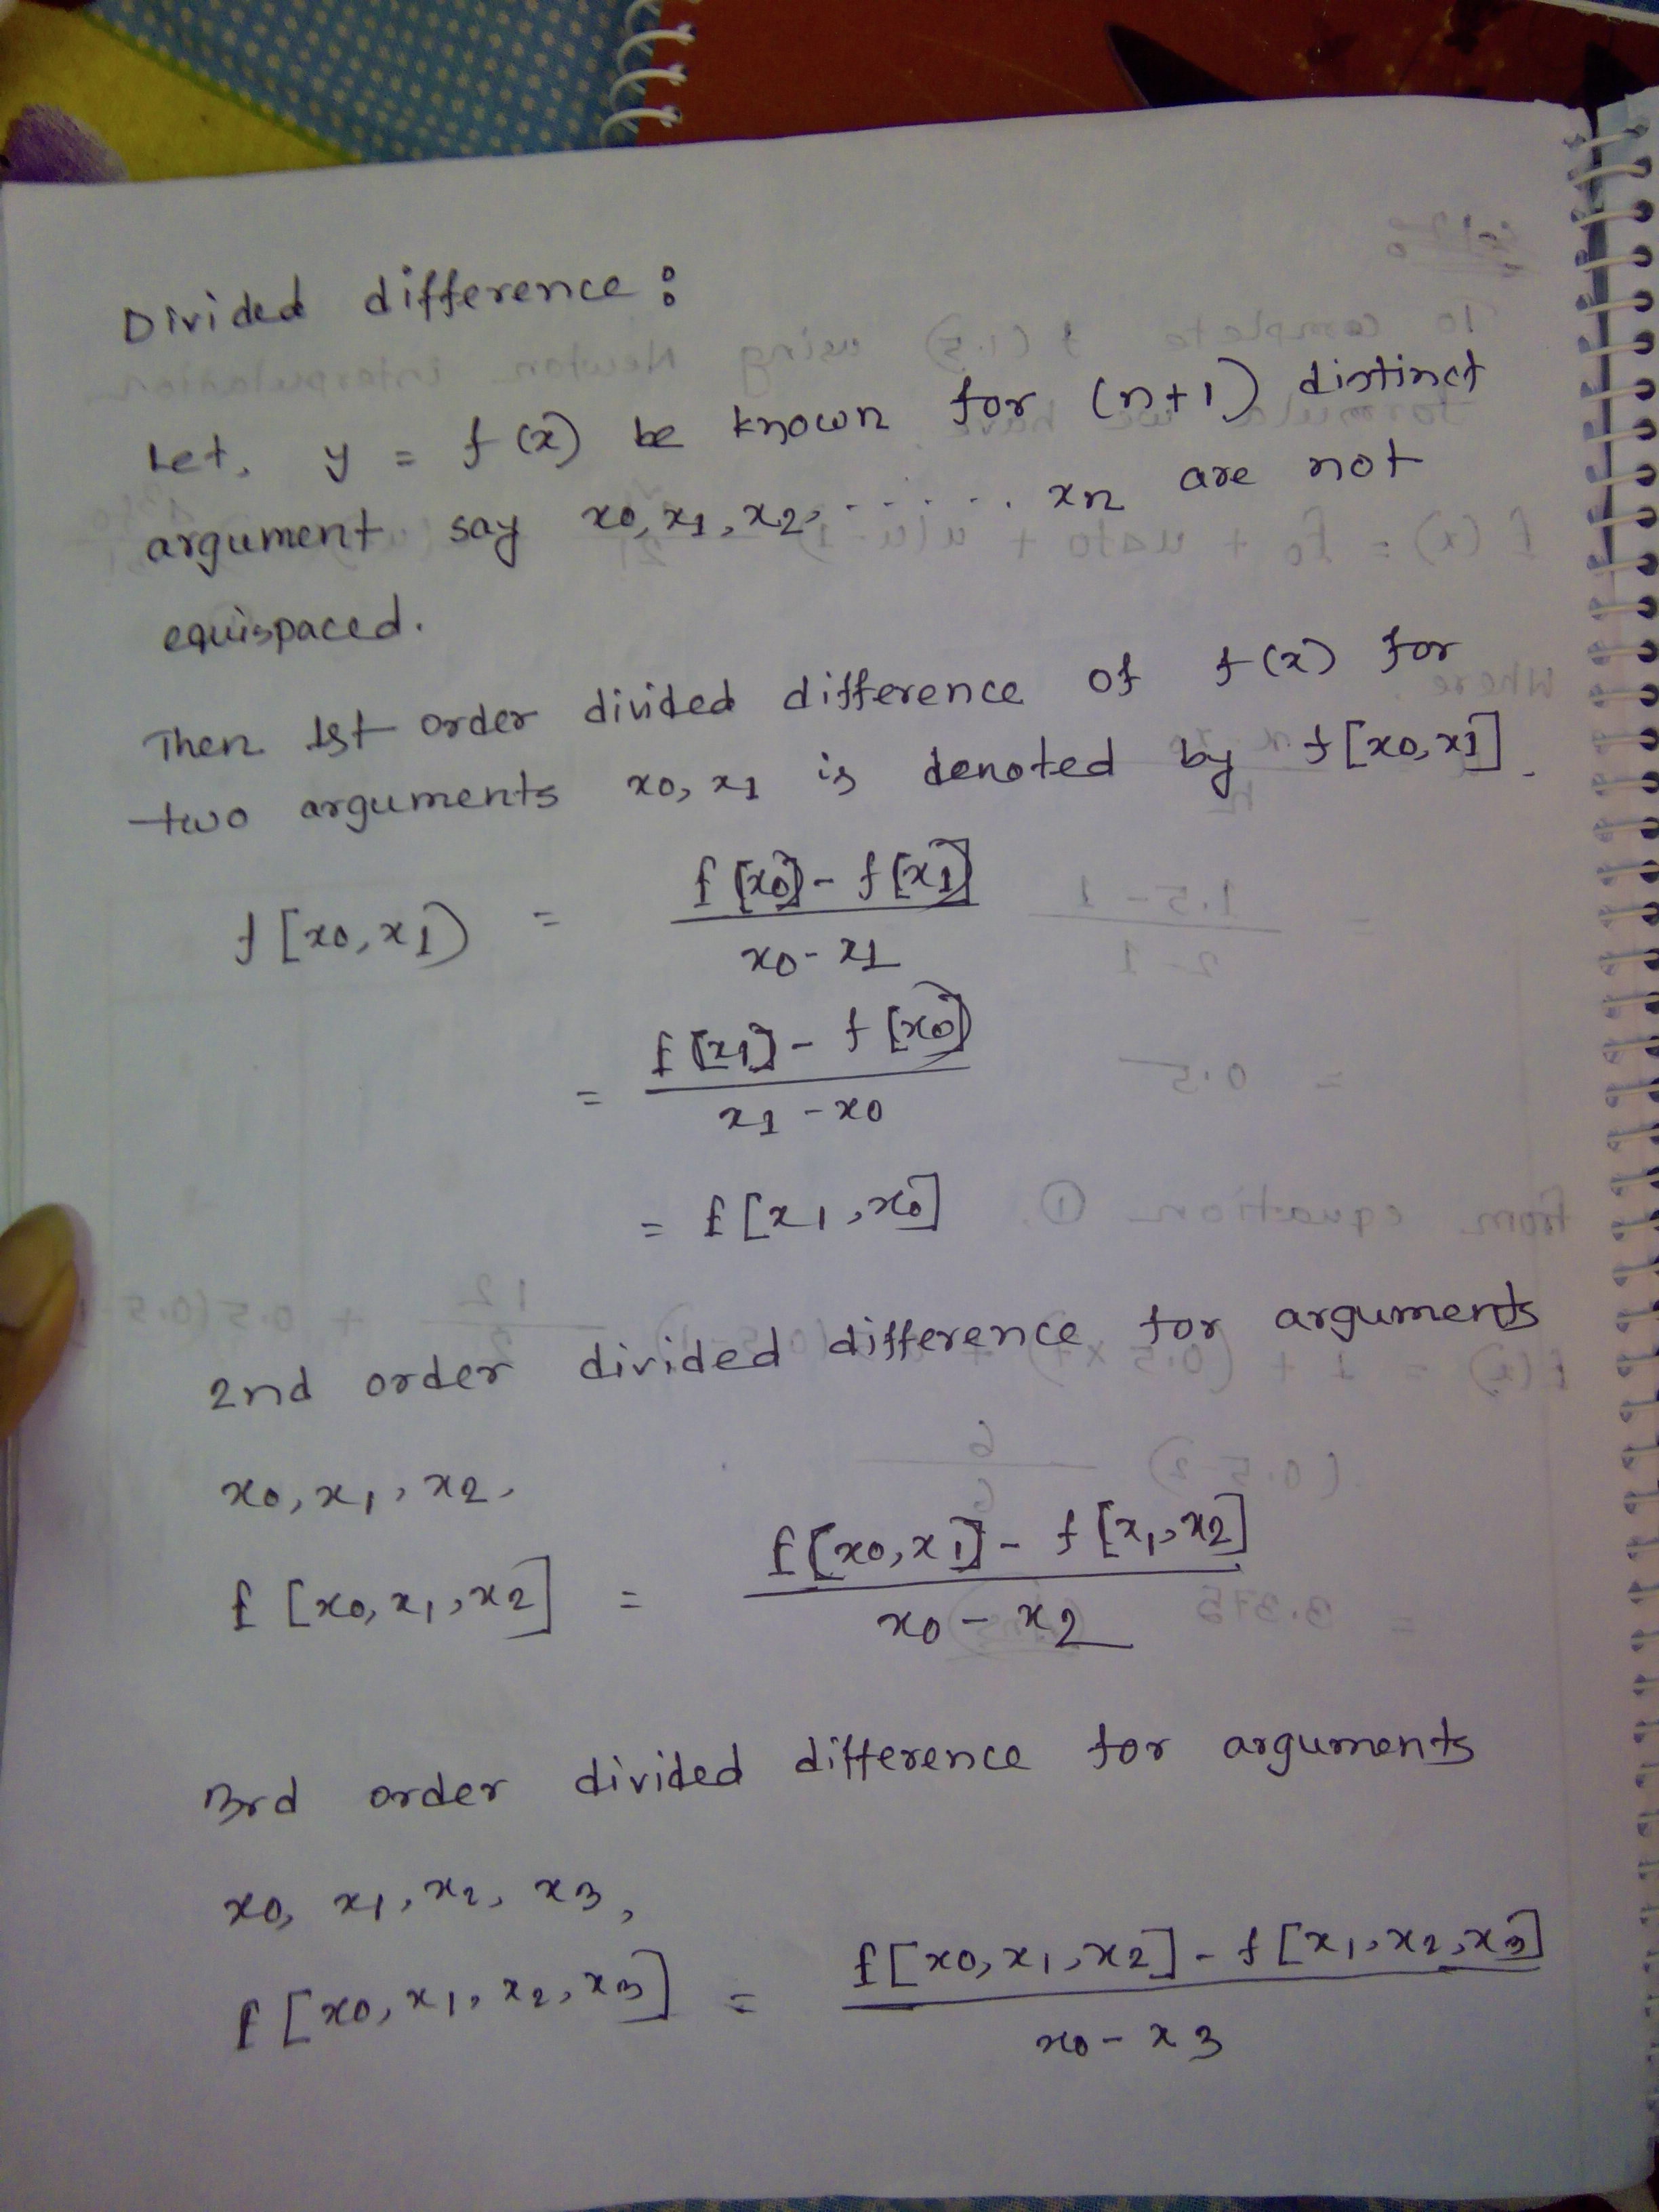 Divided difference :
Let, y = f(x) be known for (n+1) distinct
argument say x0, x1, x2, ...... xn are not
equispaced.
Then 1st order divided difference of f(x) for
two arguments x0, x1 is denoted by f[x0, x1].
f[x0, x1) = f[x0] - f[x1] / x0 - x1
= f[x1] - f[x0] / x1 - x0
= f[x1, x0]
2nd order divided difference for arguments
x0, x1, x2,
f[x0, x1, x2] = f[x0, x1] - f[x1, x2] / x0 - x2
3rd order divided difference for arguments
x0, x1, x2, x3,
f[x0, x1, x2, x3] = f[x0, x1, x2] - f[x1, x2, x3] / x0 - x3